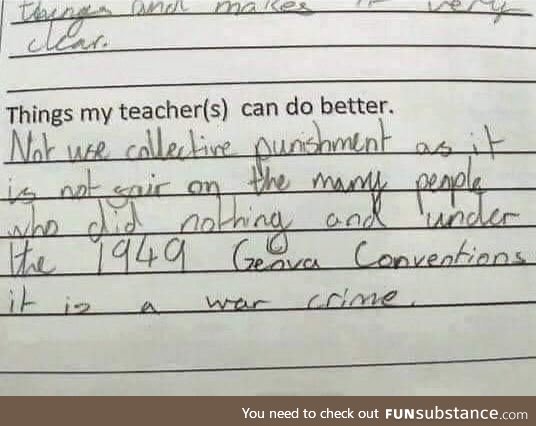 things and makes it very
clear.
Things my teacher(s) can do better.
Not use collective punishment as it
is not fair on the many people
who did nothing and under
the 1949 Geneva Conventions
it is a war crime.
You need to check out FUNsubstance.com